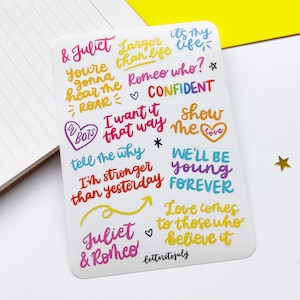 & Juliet
Larger
than life
it's my
life
you're
gonna
hear me
ROAR
Romeo who?
CONFIDENT
I want it
that way
show
me
love
tell me why
I'm stronger
than yesterday
WE'LL BE
young
FOREVER
Juliet
& Romeo
Love comes
to those who
believe it